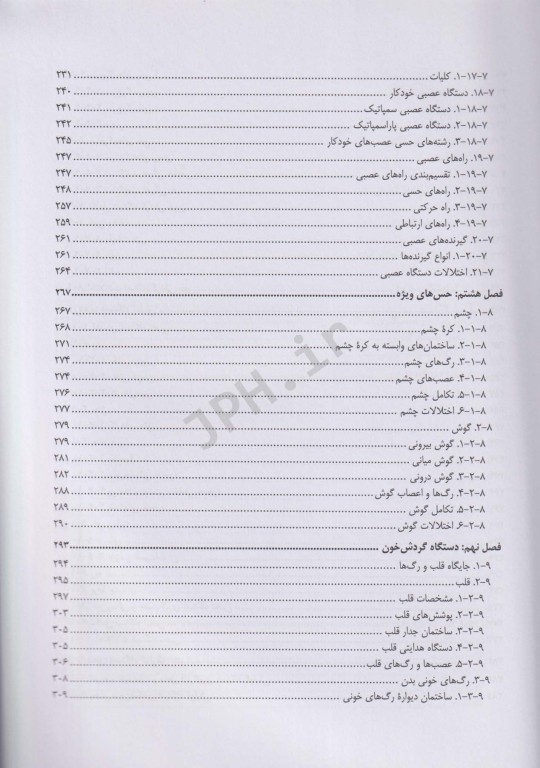 ۱-۱۷-۷. کلیات ۲۳۱
۱۸-۷. دستگاه عصبی خودکار ۲۴۰
۱-۱۸-۷. دستگاه عصبی سمپاتیک ۲۴۱
۲-۱۸-۷. دستگاه عصبی پاراسمپاتیک ۲۴۲
۳-۱۸-۷. رشته‌های حسی عصب‌های خودکار ۲۴۵
۱۹-۷. راه‌های عصبی ۲۴۷
۱-۱۹-۷. تقسیم‌بندی راه‌های عصبی ۲۴۷
۲-۱۹-۷. راه‌های حسی ۲۴۸
۳-۱۹-۷. راه حرکتی ۲۵۷
۴-۱۹-۷. راه‌های ارتباطی ۲۵۹
۲۰-۷. گیرنده‌های عصبی ۲۶۱
۱-۲۰-۷. انواع گیرنده‌ها ۲۶۱
۲۱-۷. اختلالات دستگاه عصبی ۲۶۴
فصل هشتم: حس‌های ویژه ۲۶۷
۱-۸. چشم ۲۶۷
۱-۱-۸. کرهٔ چشم ۲۶۸
۲-۱-۸. ساختمان‌های وابسته به کرهٔ چشم ۲۷۱
۳-۱-۸. رگ‌های چشم ۲۷۴
۴-۱-۸. عصب‌های چشم ۲۷۴
۵-۱-۸. تکامل چشم ۲۷۶
۶-۱-۸. اختلالات چشم ۲۷۷
۲-۸. گوش ۲۷۹
۱-۲-۸. گوش بیرونی ۲۷۹
۲-۲-۸. گوش میانی ۲۸۱
۳-۲-۸. گوش درونی ۲۸۲
۴-۲-۸. رگ‌ها و اعصاب گوش ۲۸۸
۵-۲-۸. تکامل گوش ۲۸۹
۶-۲-۸. اختلالات گوش ۲۹۰
فصل نهم: دستگاه گردش‌خون ۲۹۳
۱-۹. جایگاه قلب و رگ‌ها ۲۹۴
۲-۹. قلب ۲۹۵
۱-۲-۹. مشخصات قلب ۲۹۷
۲-۲-۹. پوشش‌های قلب ۳۰۳
۳-۲-۹. ساختمان جدار قلب ۳۰۵
۴-۲-۹. دستگاه هدایتی قلب ۳۰۵
۵-۲-۹. عصب‌ها و رگ‌های قلب ۳۰۶
۳-۹. رگ‌های خونی بدن ۳۰۸
۱-۳-۹. ساختمان دیوارهٔ رگ‌های خونی ۳۰۹
JPH.ir